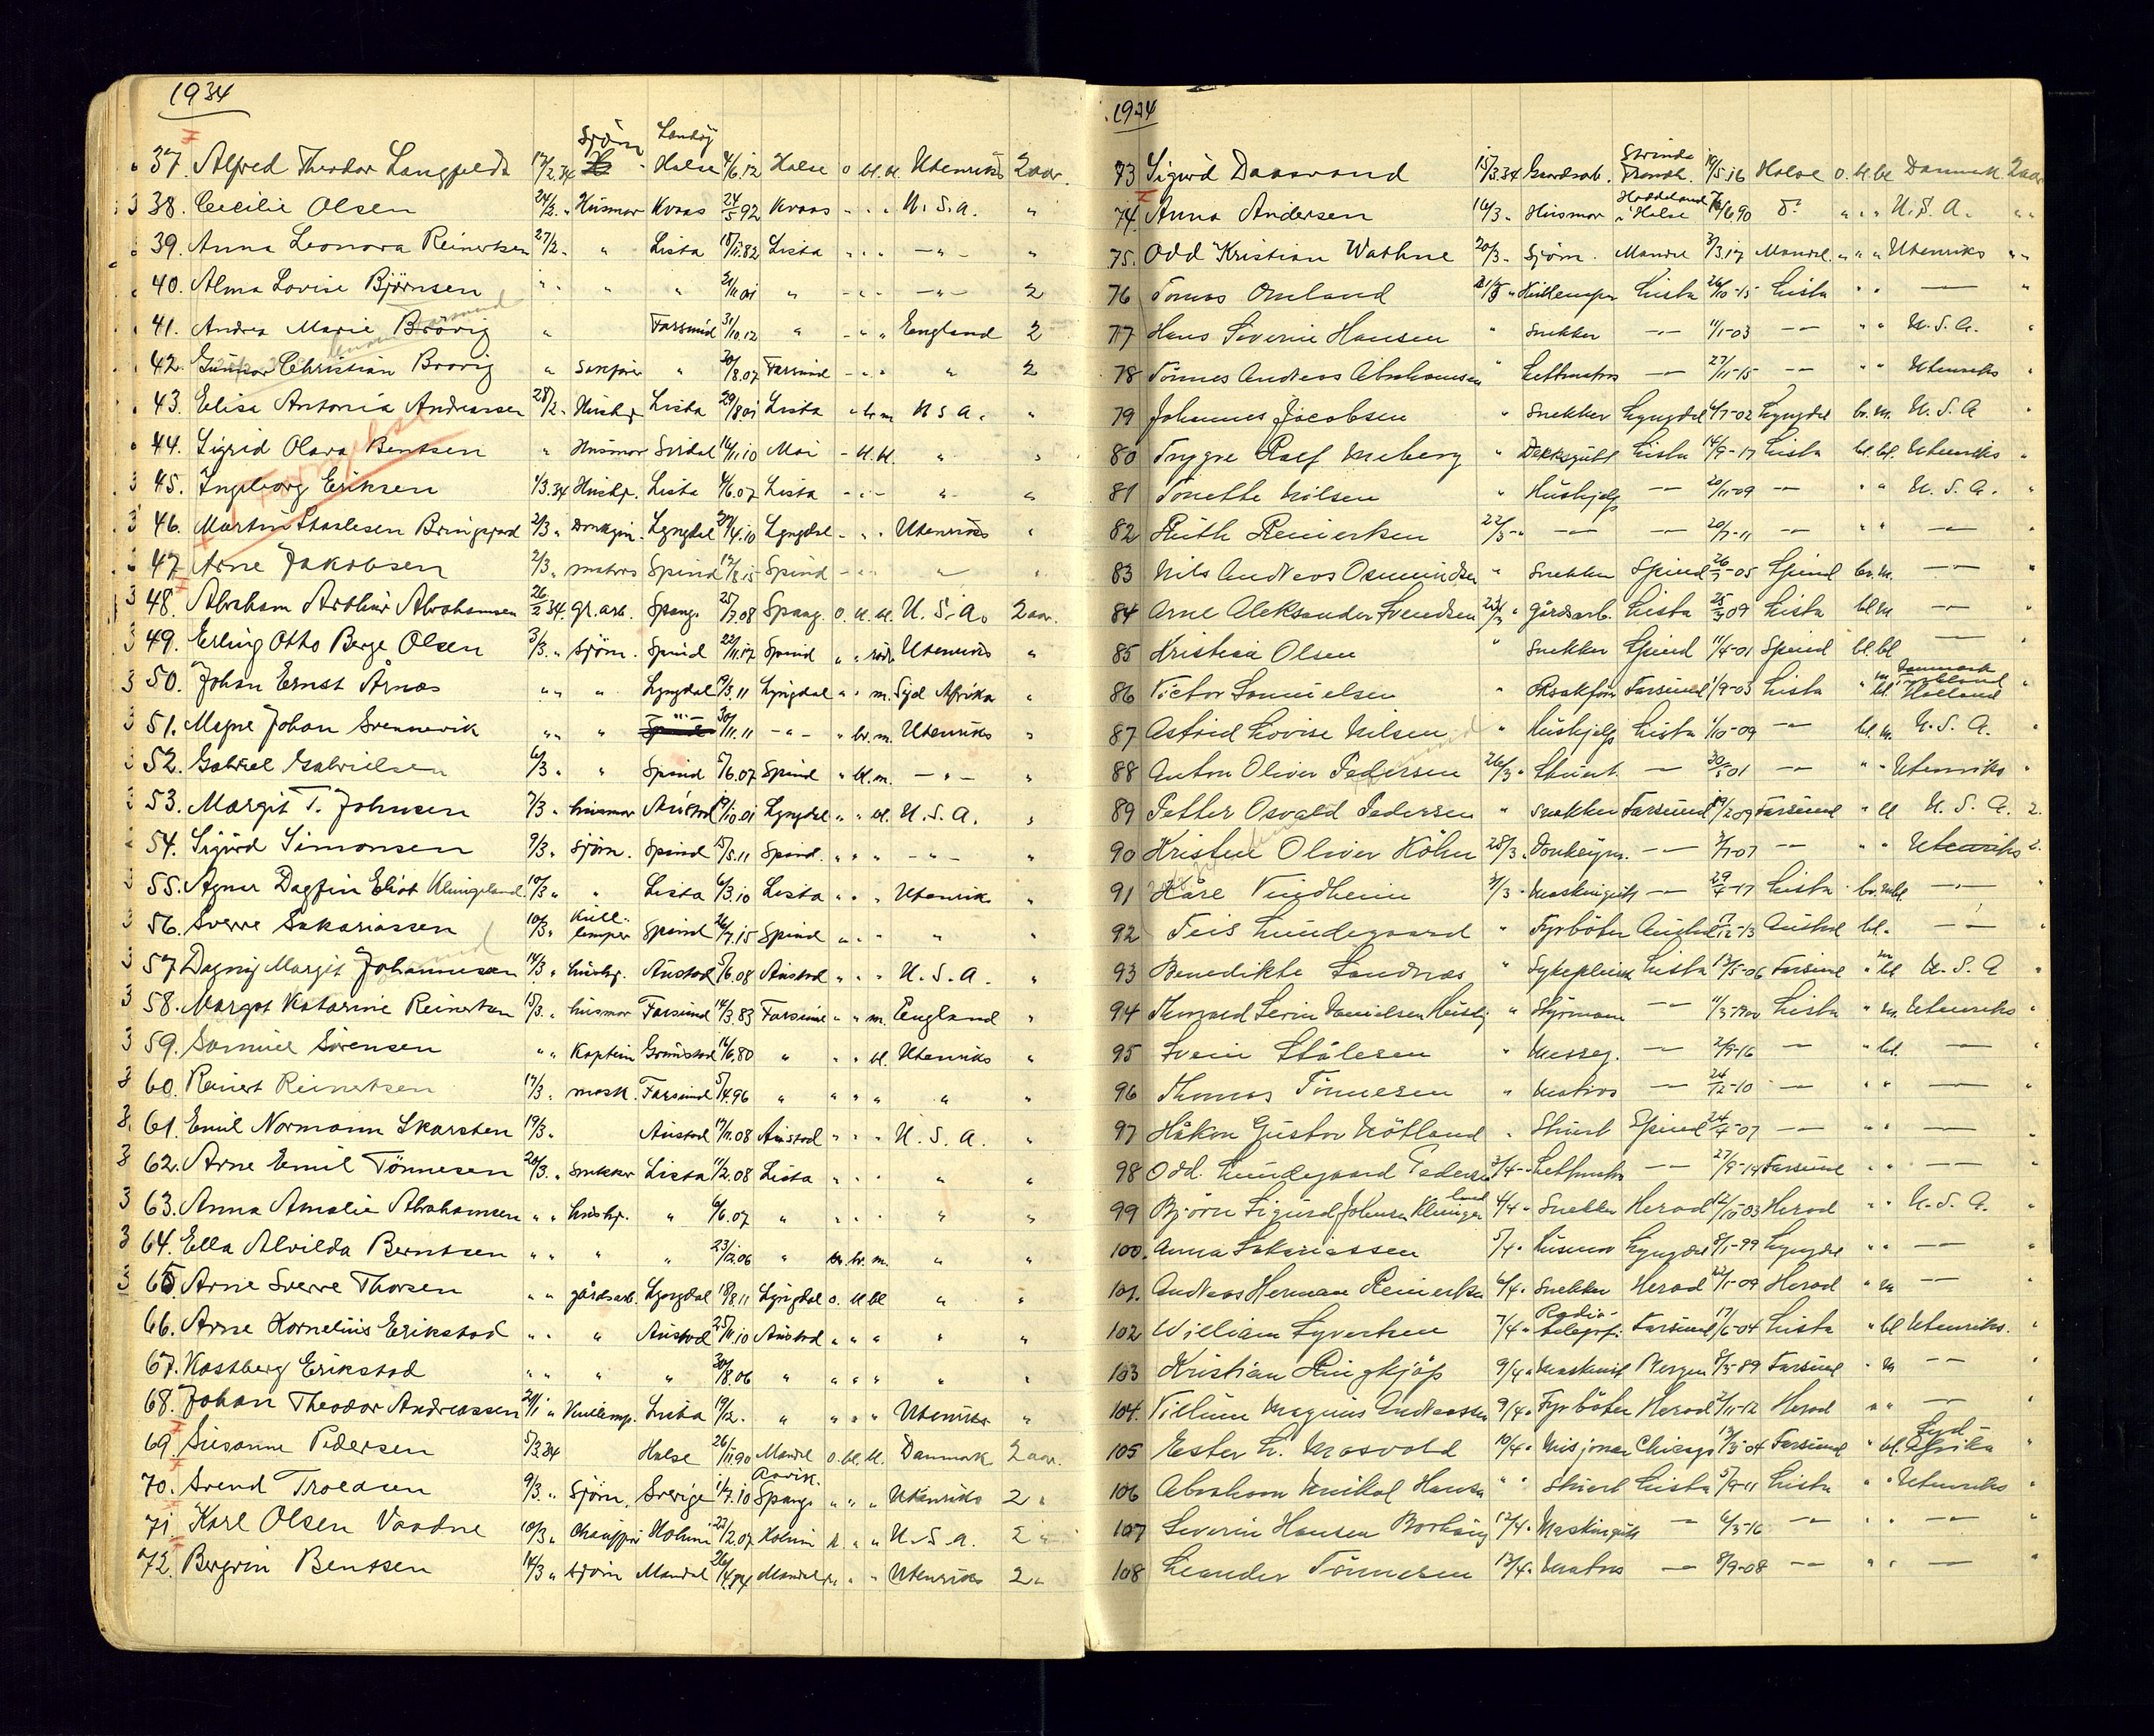 1934
37. Alfred Theodor Langfeldt 17/2.34 Sjöm Halse 4/6.12 Halse o bl. bl. Utenriks 2 aar.
38. Cecilie Olsen 24/2. " Husmor Kvaas 24/5 92 Kvaas - " " U.S.A. "
39. Anna Leonora Reinertsen 27/2 - " Lista 18/11.82 Lista - " " -"- "
40. Alma Lovise Björnsen " " " " 21/11 01 " - " " -"- 2
41. Andrea Marie Brövig " Farsund 31/10.12 " - " " England 2
42. Gunnar Christian Brovig " " 20/8.07 Farsund - " " " 2
43. Elise Antonia Andreassen 28/2 - Hushj. Lista 29/8 01 Lista " br. m U S A. "
44. Sigrid Olava Bentsen " Husmor Sirdal 16/11.10 Moi - bl. bl. " "
45. Ingeborg Eriksen 1/3.34 Hushj. Lista 4/6.07 Lista - " - " "
46. Martin Staalesen Bringsjord 2/3 " Donkejm. Lyngdal 4.10 Lyngdal - " " Utenriks "
47 Arne Jakobsen 2/3 " matros Spind 12/8.15 Spind - " " " "
48. Abraham Arthur Abrahamsen 26/2 34. gr. arb. Spang. 25/7.08 Spang. o. bl. bl. U.S.A. 2 aar.
49. Erling Otto Berge Olsen 3/3. " Sjöm. Spind 22/11.17 Spind " " Utenriks "
50. Johan Ernst Årnes " " " Lyngdal 19/3.11 Lyngdal " " m. Syd Afrika "
51. Magne Johan Svennevik " " " -"- 30/11.11 -"- " br. m. Utenriks "
52. Gabriel Gabrielsen 6/3 " " Spind 5/6.07 Spind " bl. m. -"- "
53. Margit T. Johnsen 7/3 " husmor Austad 19/10.01 Lyngdal " " bl. U.S.A. "
54. Sigurd Simonsen 9/3 " Sjöm. Spind 15/5.11 Spind. " " " -"- "
55. Agnar Dagfin Eliot Klungeland. 10/3 " " Lista 6/3.10 Lista " " " Utenrik "
56. Sverre Sakariassen 10/3 " Kull- lemper Spind 26/7.15 Spind " " - " "
57 Dagny Margit Johannessen 14/3 " hushj. Austad 5/6.08 Austad " " " U.S.A. "
58. Margot Katarine Reinertsen 15/3. " husmor Farsund 14/3.83 Farsund " " m. England "
59. Samuel Sörensen " " Kaptein Grimstad 16/6.80 " " " bl. Utenriks "
60. Reinert Reinertsen 17/3 " mask. Farsund 5/4.96 " " " " " "
61. Emil Normann Skarsten 19/3 " Austad 17/11.08 Austad " " " U.S.A. "
62. Arne Emil Tönnesen 20/3. " Snekker Lista 11/2.08 Lista " " " " "
63. Anna Amalie Abrahamsen " " hushj. " 6/6.07 " " " " " "
64. Ella Alvilda Berntsen " " " " 23/12.06 " br. m. " "
65 Arne Sverre Thorsen " " gårdsarb. Lyngdal 18/8.11 Lyngdal o. bl bl " "
66. Arne Kornelius Erikstad " " " Austad 25/11.10 Austad " " " " "
67. Kastberg Erikstad " " " " 30/8.06 " " " " " "
68. Johan Theodor Andreassen 20/1 " Kullemp. Lista 19/12. " " " " Utenriks "
69 Susanne Pedersen 5/3 34 Halse 26/11.90 Mandal o. bl. bl. Danmark 2 aar.
70. Svend Troelsen 9/3. " Sjöm. Sverige 1/7.10 Spang. " " " Utenriks 2 "
71. Karl Olsen Vaadne 10/3 " Chauffør Holum 23/2.07 Holum " " U.S.A. 2 "
72. Bergvin Bentsen 14/3 " Sjöm Mandal 26/ Mandal " " Utenriks 2 "
1934
73 Sigurd Daasvand 15/3.34 Gaardsarb. Strinda Trondh. 19/5.16 Halse o. bl bl Danmark 2 aar
74. Anna Andersen 16/3 " Husmor Haddeland i Halse 6.90 Do " " " U.S.A. " "
75. Odd Kristian Wathne 20/3 " Sjöm. Mandal 3/3.17 Mandal " " " Utenriks " "
76 Tomas Omland 21/3 " Kullemper Lista 26/10-15 Lista " " — "
77 Hans Severin Hansen " Snekker -"- 11/1-03 -"- " " U.S.A. "
78 Tönnes Andreas Abrahamsen " Lettmatros — 27/11-15 -"- " " Utenriks "
79 Johannes Jacobsen " Snekker Lyngdal 6/7-02 Lyngdal br. m. U.S.A "
80 Trygve Rolf Meberg " Dekksgutt Lista 14/9-17 Lista bl. bl. Utenriks "
81 Tonette Nilsen " Hushjelp — 20/11-09 -"- " " U.S.A. "
82 Ruth Reinertsen 22/3 -" -"- -"- 20/7-11 -"- " " -"-
83 Nils Andreas Osmundsen " Snekker Spind 26/7-05 Spind br. m. -"- "
84 Arne Aleksander Svendsen 23/3 " gårdsarb. Lista 25/3 09 Lista bl. m -"- "
85 Kristian Olsen " Snekker Spind 11/4-01 Spind bl. bl — "
86 Victor Samuelsen " Farsund 1/9-03 Lista " bl. Danmark Tyskland Holland "
87 Astrid Lovise Nilsen " Hushjelp Lista 1/10-09 -"- bl. m. U.S.A. "
88 Anton Oliver Pedersen 26/3 " Stuert — 30/5 01 -"- " " Utenriks "
89 Petter Osvald Pedersen " Snekker Farsund 19/2 09 Farsund " bl U.S.A. 2.
90 Kristen Oliver Köhn 28/3 " Donkeym. -"- 3/7-07 -"- " " Utenriks 2.
91 Kåre Vindheim 3/3 " Maskingutt — 29/4-17 Lista br. mbl -"- "
92 Teis Lundegaard " Fyrböter Austad 12-13 Austad bl. " -"- "
93 Benedikte Sandnæs " Sykepleier Lista 13/5-06 Farsund " bl U.S.A "
94 Thorvald Severin Danielsen " Styrmann -"- 11/3-1900 Lista " m. Utenriks "
95 Svein Stålesen " Messeg. — 2/9-16 — " bl. — "
96 Thomas Tönnesen " Matros — 24/12-10 — " " — "
97 Håkon Gustav Nötland " Stuert Spind 24/4-07 -"- " " — "
98 Odd. Lundegaard Pedersen 3/4 -" Lettmatr. -"- 27/9-14 Farsund " " -"- "
99 Björn Sigurd Johnsen Klungeland 4/4 " Snekker Herad 12/10-03 Herad " " U.S.A. "
100. Anna Sakariassen 5/4 " Husmor Lyngdal 8/1-99 Lyngdal " " -"- "
101. Andreas Herman Reinertsen 6/4. Snekker Herad 22/1-09 Herad " m -"- "
102 William Syvertsen 7/4 " Radio- telegrf. Farsund 17/6-04 Lista " bl Utenriks. "
103 Kristian Ringkjöp 9/4 " Maskinist Bergen 8/5-89 Farsund " m -"- "
104. Villum Magnus Andreassen 9/4 " Fyrböter Herad 2/11-12 Herad " " — "
105 Ester L. Mosvold 10/4 " Misjonær Chicago 13/3-04 Farsund " bl. Syd- Afrika "
106 Abraham Mikal Hansen " " Stuert Lista 5/9-11 Lista " " Utenriks "
107 Severin Hansen Borhaug 12/4 " Maskingutt — 6/3-16 -"- " " — "
108 Leander Tönnesen 13/4 " Matros — 8/9-08 -"- " " — "